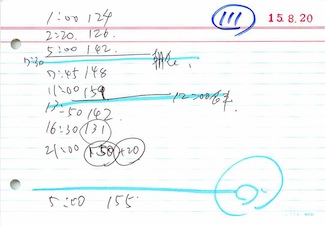 111
15.8.20
1:00 124
2:20. 126.
5:00 142.
7:30
7:45 148
11:00 159
12:00
-50 142
16:30 131
21:00 150 +20
5:00 155